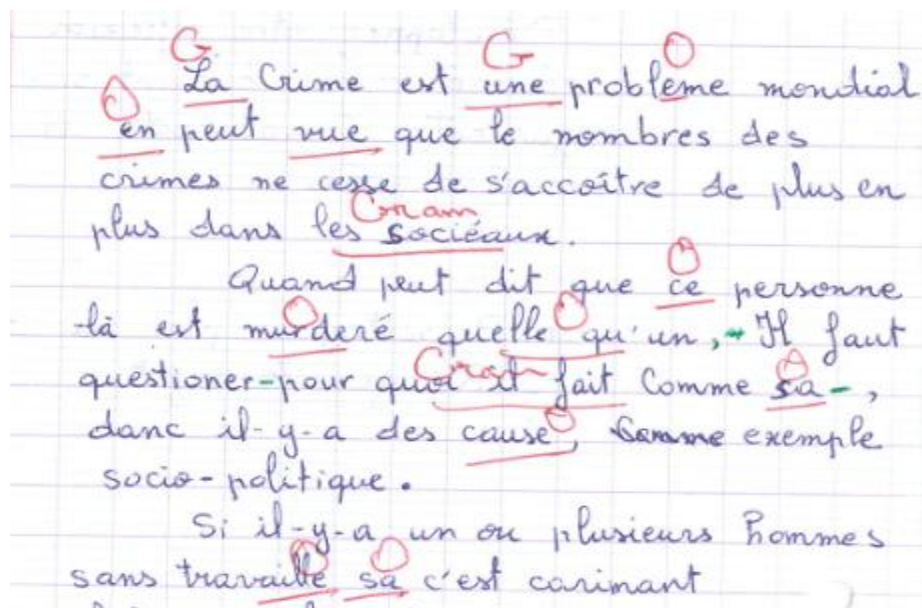 G G O
La Crime est une problème mondial
O
en peut vue que le nombres des
crimes ne cesse de s'accoître de plus en
Gram
plus dans les sociéaux.
O
Quand peut dit que ce personne
O O
là est murderé quelle qu'un, - Il faut
Gram O
questioner-pour quoi il fait Comme sa-,
O
danc il-y-a des cause, Comme exemple
socio-politique.
Si il-y-a un ou plusieurs hommes
O O
sans travaille sa c'est carimant